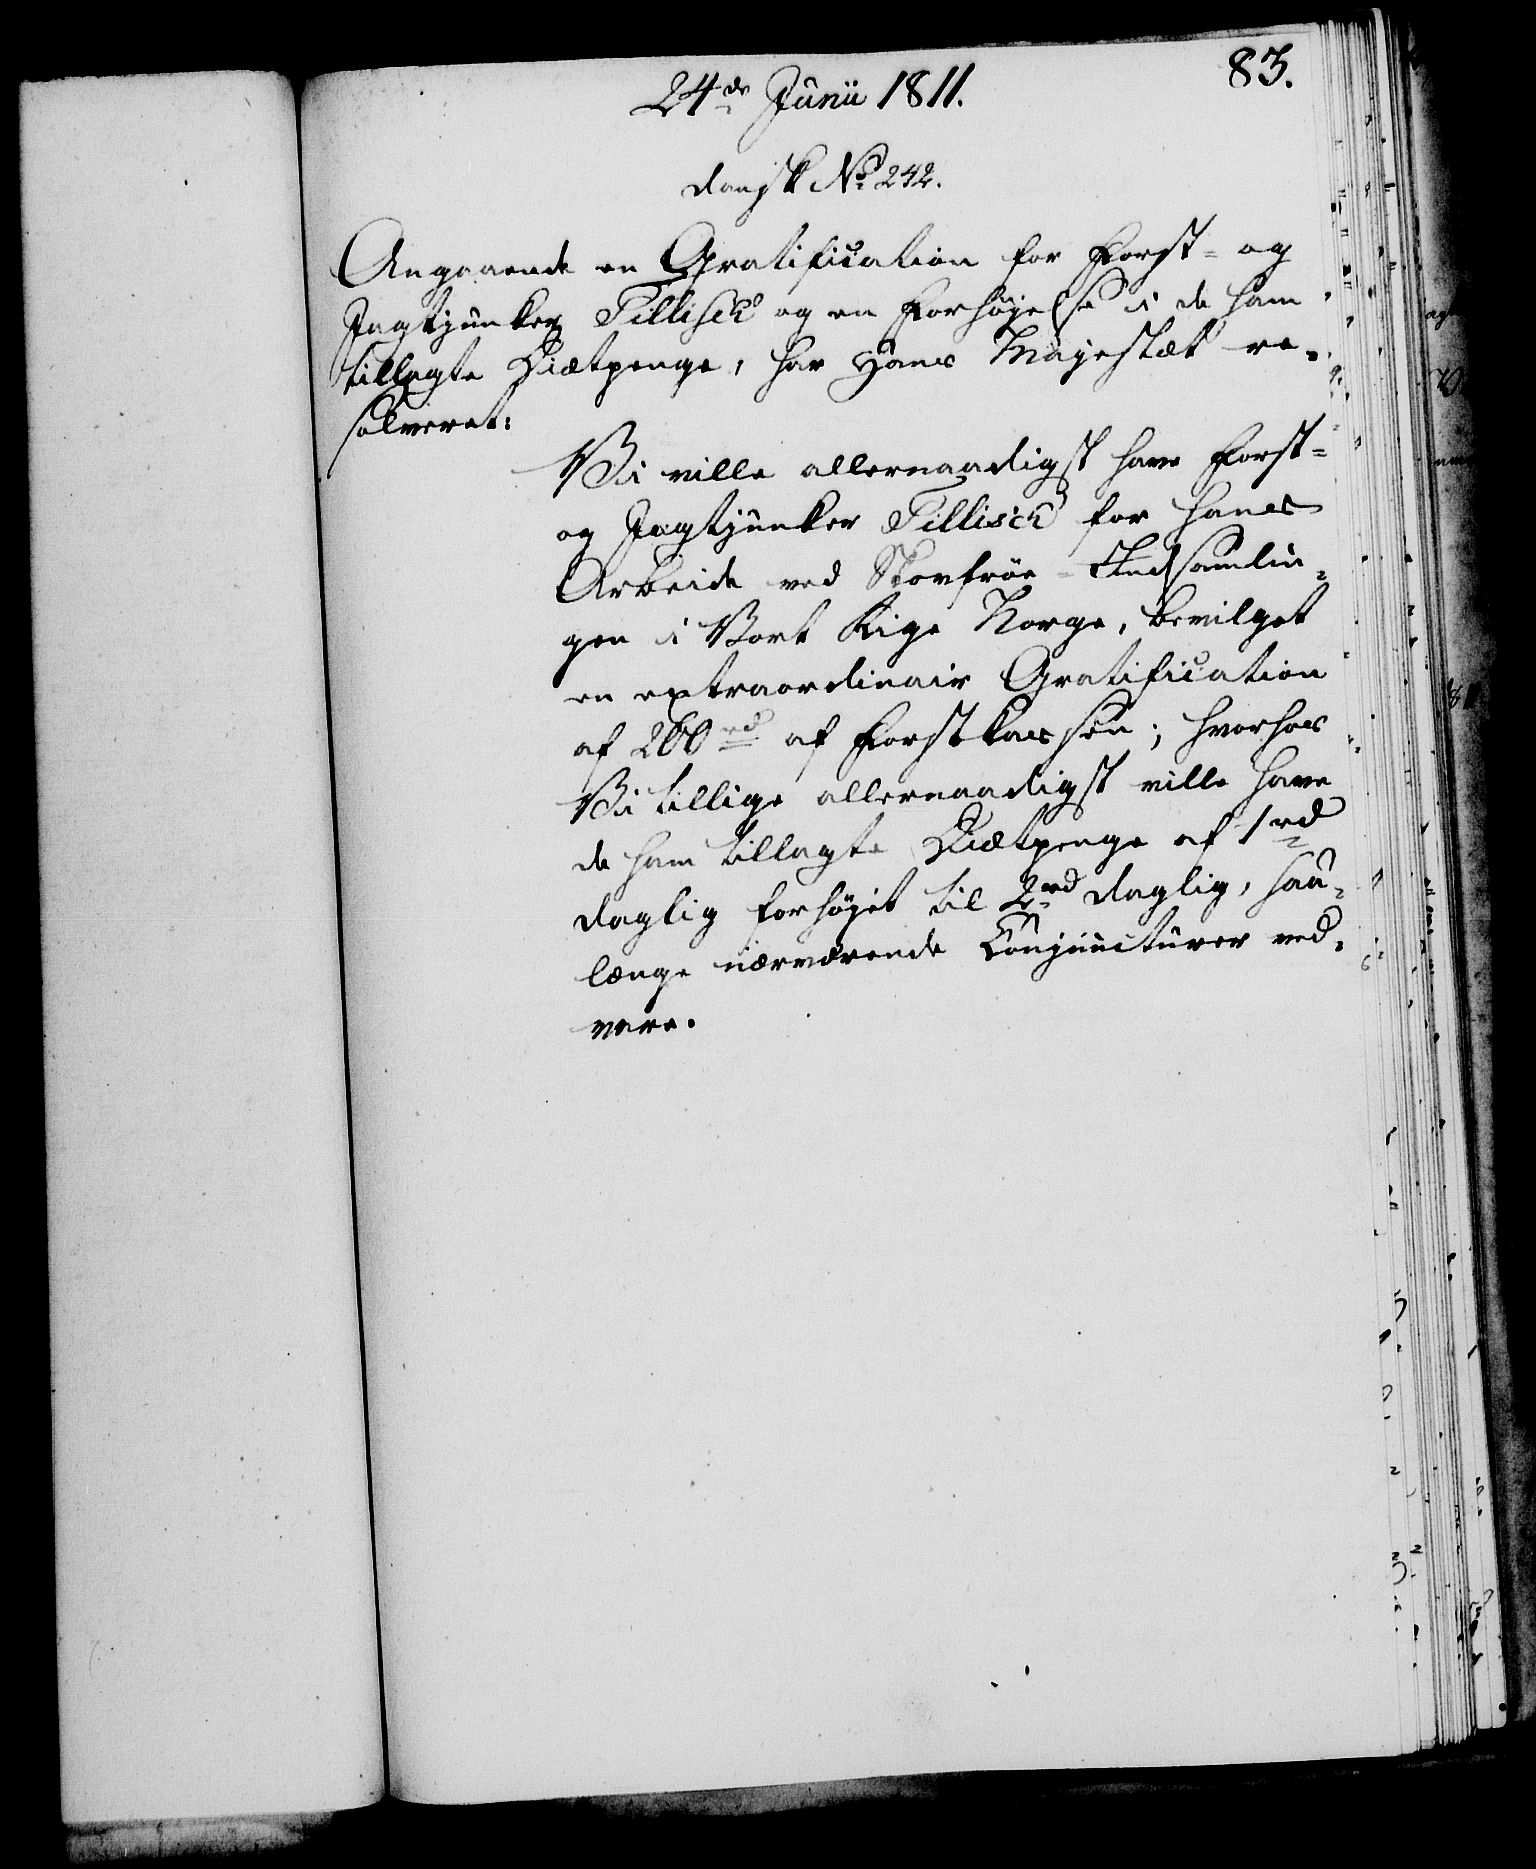 83.
24de Junii 1811.
dansk No 242.
Angaaende en Gratification for Forst- og
Jagtjunker Tillisch og en Forhøjelse i de ham
tillagte Diætpenge, har Hans Majestæt re-
solveret:
Vi ville allernaadigst have Forst-
og Jagtjunker Tillisch for hans
Arbeide ved Skovfrøe-Indsamlin-
gen i Vort Rige Norge, bevilget
en extraordinair Gratification
af 200 rd af Forstkassen; hvorhos
Vi tillige allernaadigst ville have
de ham tillagte Diætpenge af 1 rd
daglig forhøjet til 2 rd daglig, saa-
længe nærværende Conjuncturer ved-
vare.